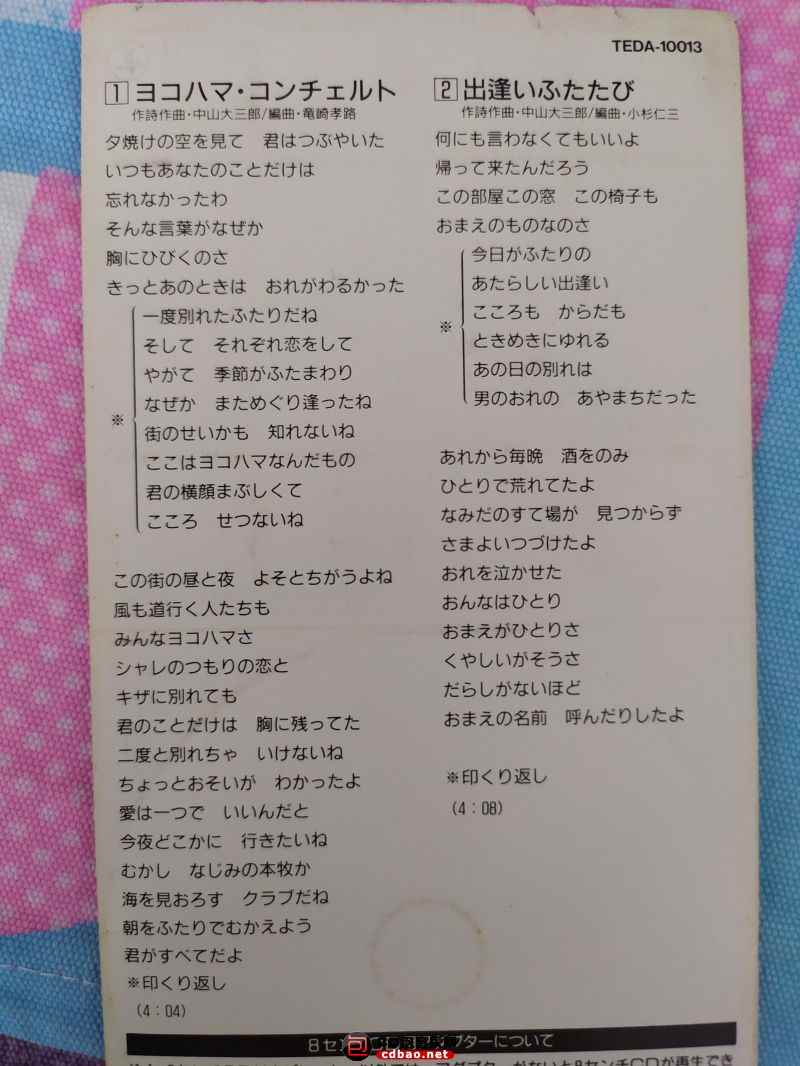 TEDA-10013
1 ヨコハマ・コンチェルト
作詩作曲・中山大三郎/編曲・竜崎孝路
夕焼けの空を見て　君はつぶやいた
いつもあなたのことだけは
忘れなかったわ
そんな言葉がなぜか
胸にひびくのさ
きっとあのときは　おれがわるかった
※
一度別れたふたりだね
そして　それぞれ恋をして
やがて　季節がふたまわり
なぜか　まためぐり逢ったね
街のせいかも　知れないね
ここはヨコハマなんだもの
君の横顔まぶしくて
こころ　せつないね
この街の昼と夜　よそとちがうよね
風も道行く人たちも
みんなヨコハマさ
シャレのつもりの恋と
キザに別れても
君のことだけは　胸に残ってた
二度と別れちゃ　いけないね
ちょっとおそいが　わかったよ
愛は一つで　いいんだと
今夜どこかに　行きたいね
むかし　なじみの本牧か
海を見おろす　クラブだね
朝をふたりでむかえよう
君がすべてだよ
※印くり返し
(4：04)
2 出逢いふたたび
作詩作曲・中山大三郎/編曲・小杉仁三
何にも言わなくてもいいよ
帰って来たんだろう
この部屋この窓　この椅子も
おまえのものなのさ
※
今日がふたりの
あたらしい出逢い
こころも　からだも
ときめきにゆれる
あの日の別れは
男のおれの　あやまちだった
あれから毎晩　酒をのみ
ひとりで荒れてたよ
なみだのすて場が　見つからず
さまよいつづけたよ
おれを泣かせた
おんなはひとり
おまえがひとりさ
くやしいがそうさ
だらしがないほど
おまえの名前　呼んだりしたよ
※印くり返し
(4：08)
8セ
プターについて
cdbao.net